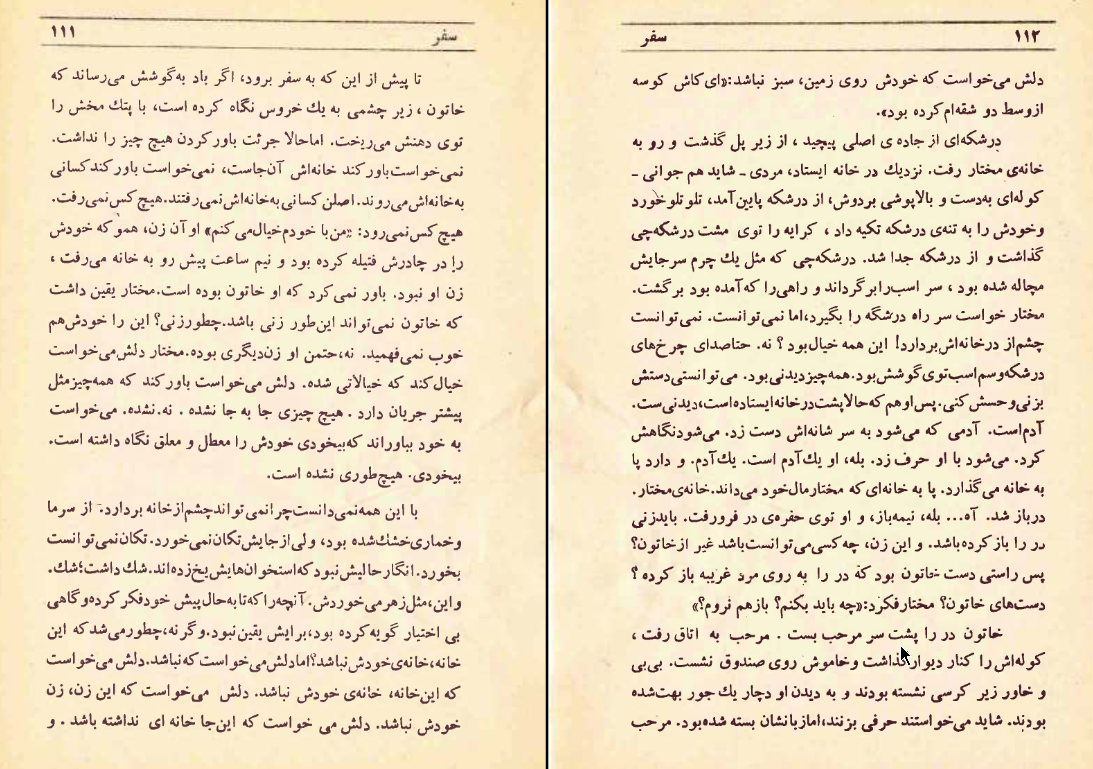 ۱۱۱ سفر
تا پیش از این که به سفر برود، اگر باد به‌گوشش می‌رساند که
خاتون ، زیر چشمی به یك خروس نگاه کرده است، با پتك مخش را
توی دهنش می‌ریخت. اما حالا جرئت باور کردن هیچ چیز را نداشت.
نمی‌خواست باور کند خانه‌اش آن‌جاست، نمی‌خواست باور کند کسانی
به خانه‌اش می‌روند. اصلن کسانی به خانه‌اش نمی‌رفتند. هیچ کس نمی‌رفت.
هیچ کس نمی‌رود: «من با خودم خیال می‌کنم» او آن زن، همو که خودش
را در چادرش فتیله کرده بود و نیم ساعت پیش رو به خانه می‌رفت ،
زن او نبود. باور نمی‌کرد که او خاتون بوده است. مختار یقین داشت
که خاتون نمی‌تواند این‌طور زنی باشد. چطور زنی؟ این را خودش هم
خوب نمی‌فهمید. نه، حتمن او زن دیگری بوده. مختار دلش می‌خواست
خیال کند که خیالاتی شده. دلش می‌خواست باور کند که همه چیز مثل
پیشتر جریان دارد . هیچ چیزی جا به جا نشده . نه. نشده. می‌خواست
به خود بباوراند که بیخودی خودش را معطل و معلق نگاه داشته است.
بیخودی. هیچ‌طوری نشده است.
با این همه نمی‌دانست چرا نمی‌تواند چشم از خانه بردارد. از سرما
و خماری خشك شده بود، ولی از جایش تکان نمی‌خورد. تکان نمی‌توانست
بخورد. انگار حالیش نبود که استخوان‌هایش یخ زده‌اند. شك داشت؛ شك.
و این، مثل زهر می‌خوردش. آنچه را که تا به حال پیش خود فکر کرده و گاهی
بی اختیار گویه کرده بود، برایش یقین نبود. و گرنه، چطور می‌شد که این
خانه، خانه‌ی خودش نباشد؟ اما دلش می‌خواست که نباشد. دلش می‌خواست
که این خانه، خانه‌ی خودش نباشد. دلش می‌خواست که این زن، زن
خودش نباشد. دلش می خواست که این‌جا خانه ای نداشته باشد . و
سفر ۱۱۲
دلش می‌خواست که خودش روی زمین، سبز نباشد: «ای کاش کوسه
از وسط دو شقه‌ام کرده بود».
درشکه‌ای از جاده ی اصلی پیچید ، از زیر پل گذشت و رو به
خانه‌ی مختار رفت. نزدیك در خانه ایستاد، مردی ـ شاید هم جوانی ـ
کوله‌ای به‌دست و بالاپوشی بردوش، از درشکه پایین آمد، تلو تلو خورد
و خودش را به تنه‌ی درشکه تکیه داد ، کرایه را توی مشت درشکه‌چی
گذاشت و از درشکه جدا شد. درشکه‌چی که مثل یك چرم سر جایش
مچاله شده بود ، سر اسب را برگرداند و راهی را که آمده بود برگشت.
مختار خواست سر راه درشگه را بگیرد، اما نمی‌توانست. نمی‌توانست
چشم از در خانه‌اش بردارد! این همه خیال بود ؟ نه. حتا صدای چرخ‌های
درشکه و سم اسب توی گوشش بود. همه چیز دیدنی بود. می‌توانستی دستش
بزنی و حسش کنی. پس او هم که حالا پشت در خانه ایستاده است، دیدنی ست.
آدم است. آدمی که می‌شود به سر شانه‌اش دست زد. می‌شود نگاهش
کرد. می‌شود با او حرف زد. بله، او یك آدم است. یك آدم. و دارد پا
به خانه می‌گذارد. پا به خانه‌ای که مختار مال خود می‌داند. خانه‌ی مختار.
در باز شد. آه... بله، نیمه‌باز، و او توی حفره‌ی در فرو رفت. باید زنی
در را باز کرده باشد. و این زن، چه کسی می‌توانست باشد غیر از خاتون؟
پس راستی دست خاتون بود که در را به روی مرد غریبه باز کرده ؟
دست‌های خاتون؟ مختار فکر کرد: «چه باید بکنم؟ باز هم نروم؟»
خاتون در را پشت سر مرحب بست . مرحب به اتاق رفت ،
کوله‌اش را کنار دیوار گذاشت و خاموش روی صندوق نشست. بی‌بی
و خاور زیر کرسی نشسته بودند و به دیدن او دچار یك جور بهت شده
بودند. شاید می‌خواستند حرفی بزنند، اما زبانشان بسته شده بود. مرحب